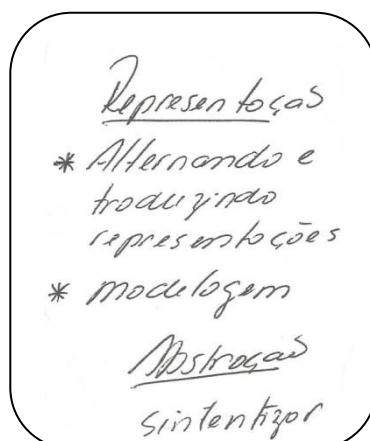 Representação
* Alternando e
traduzindo
representações
* modelagem
Abstração
sintentizar